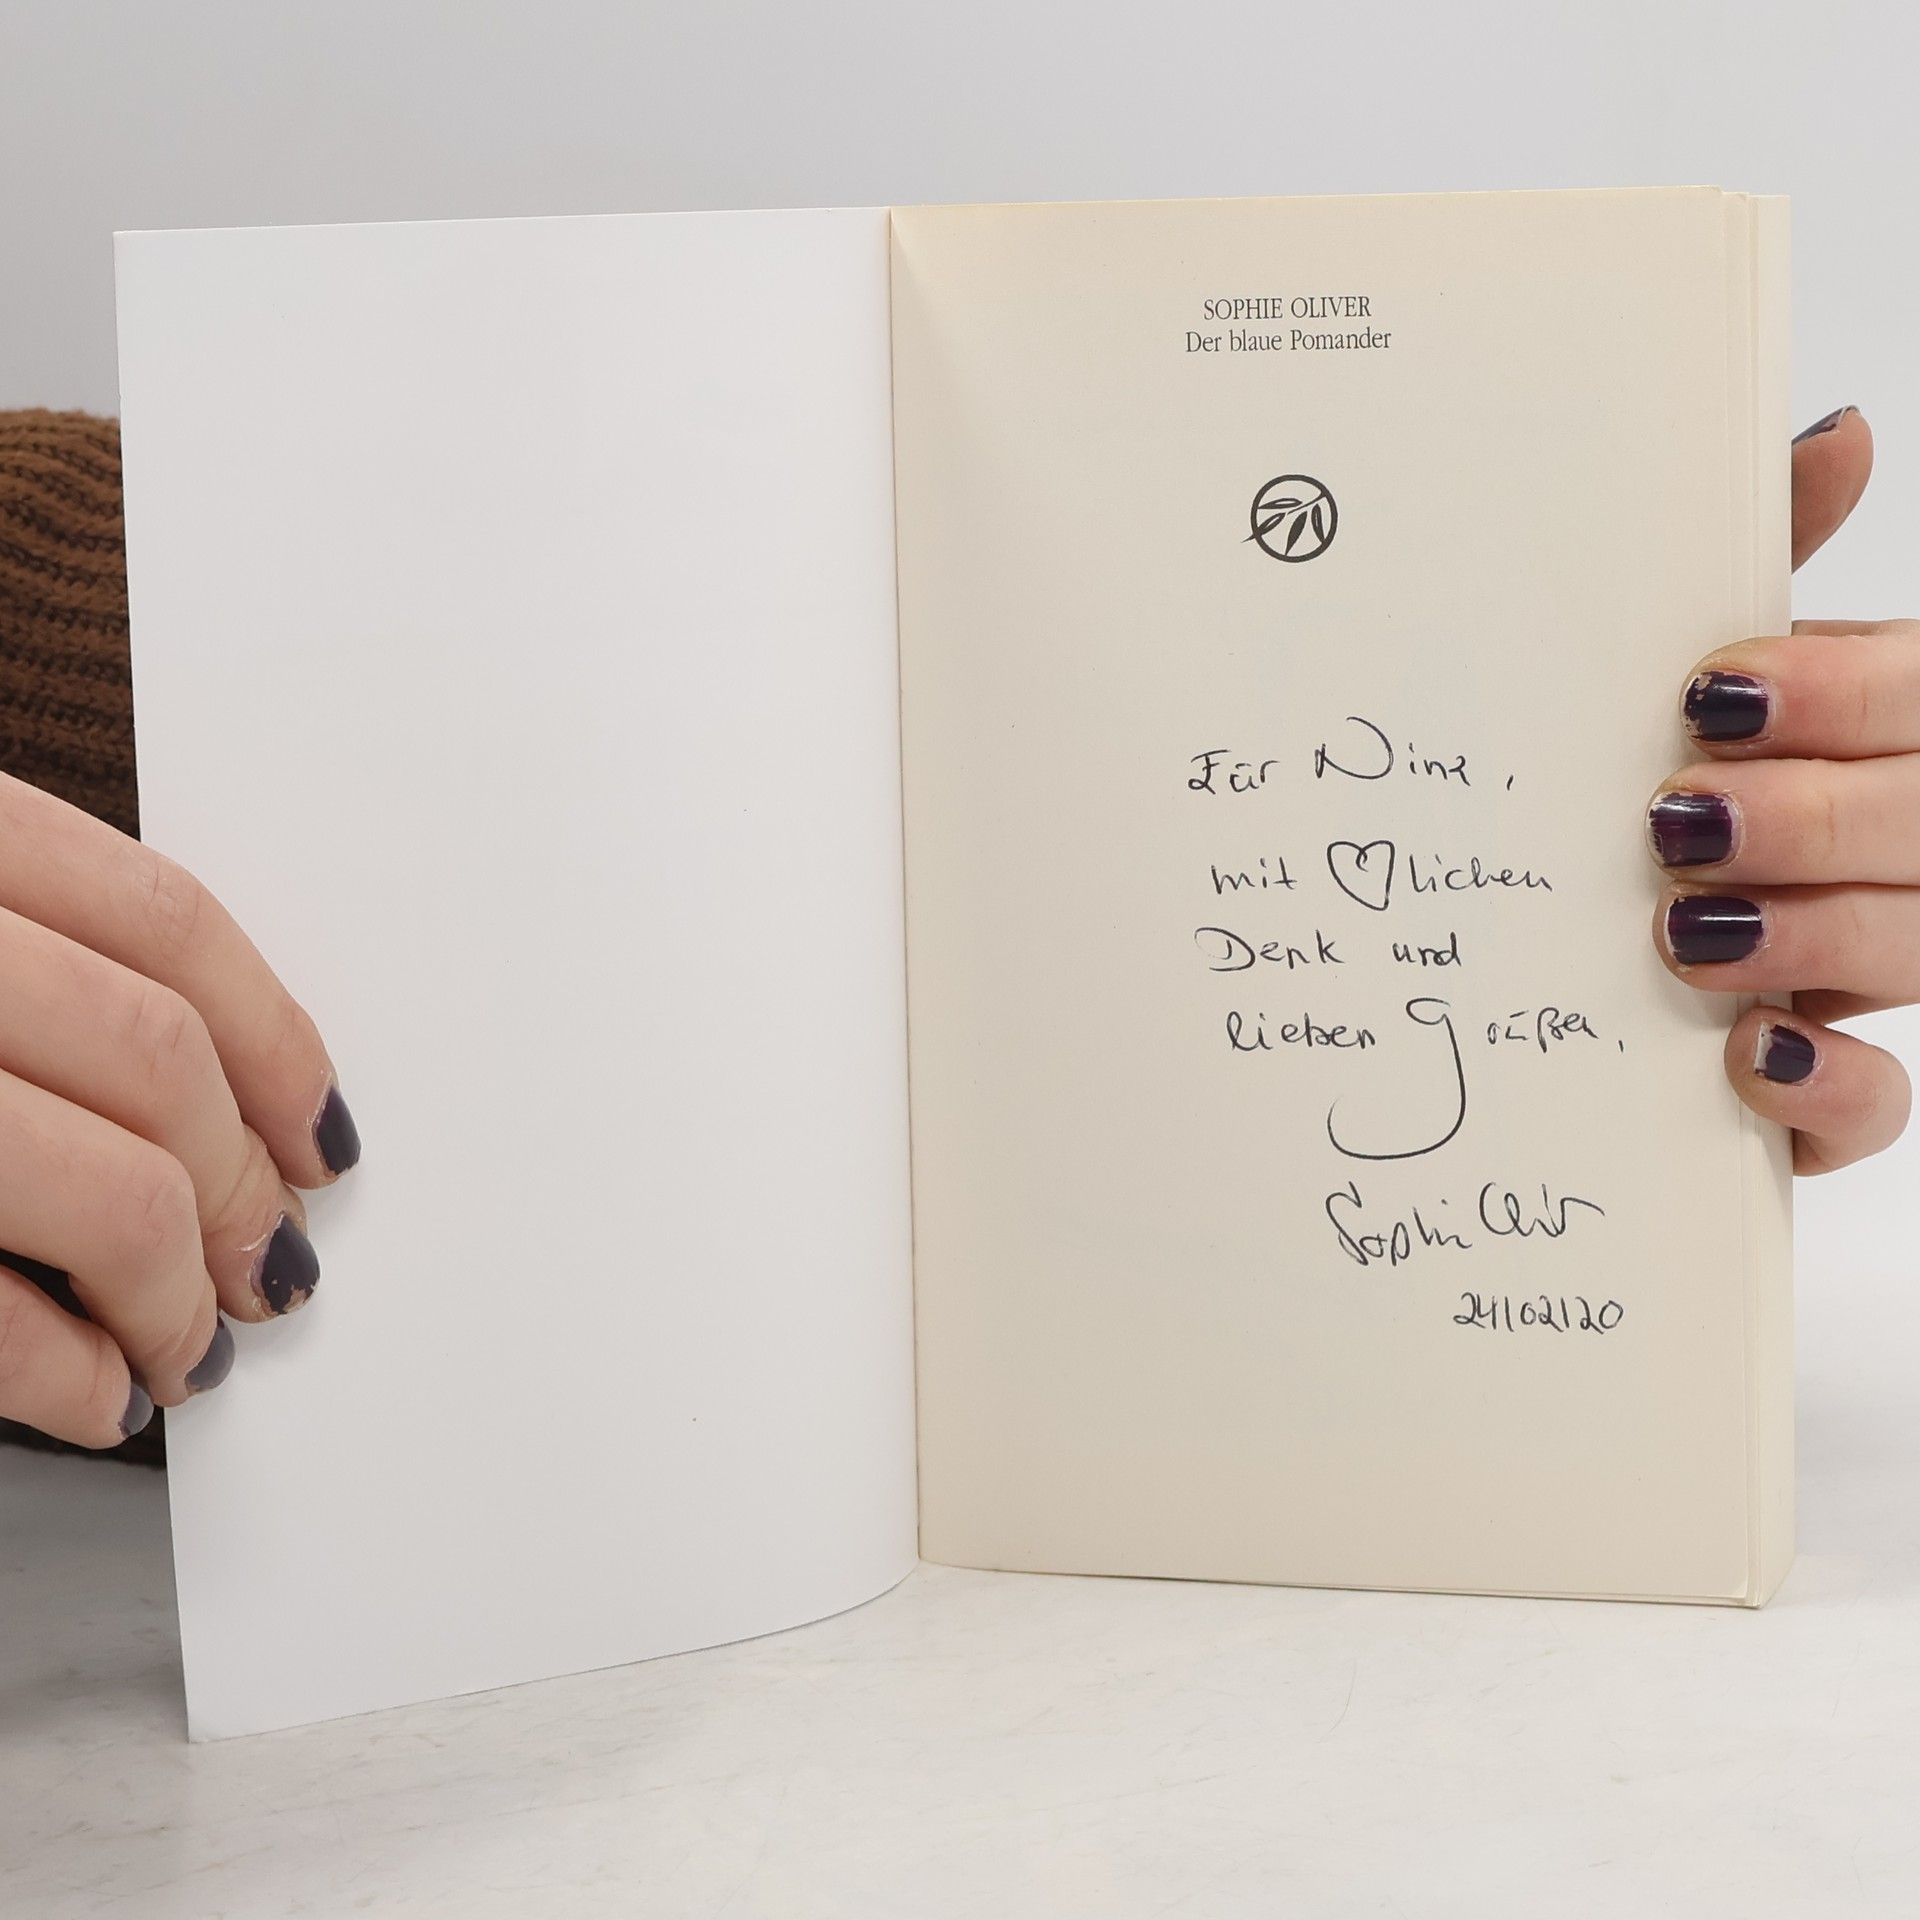 SOPHIE OLIVER
Der blaue Pomander
Für Nina,
mit ♡lichen
Dank und
lieben Grüßen,
Sophie Oliver
24/02/20